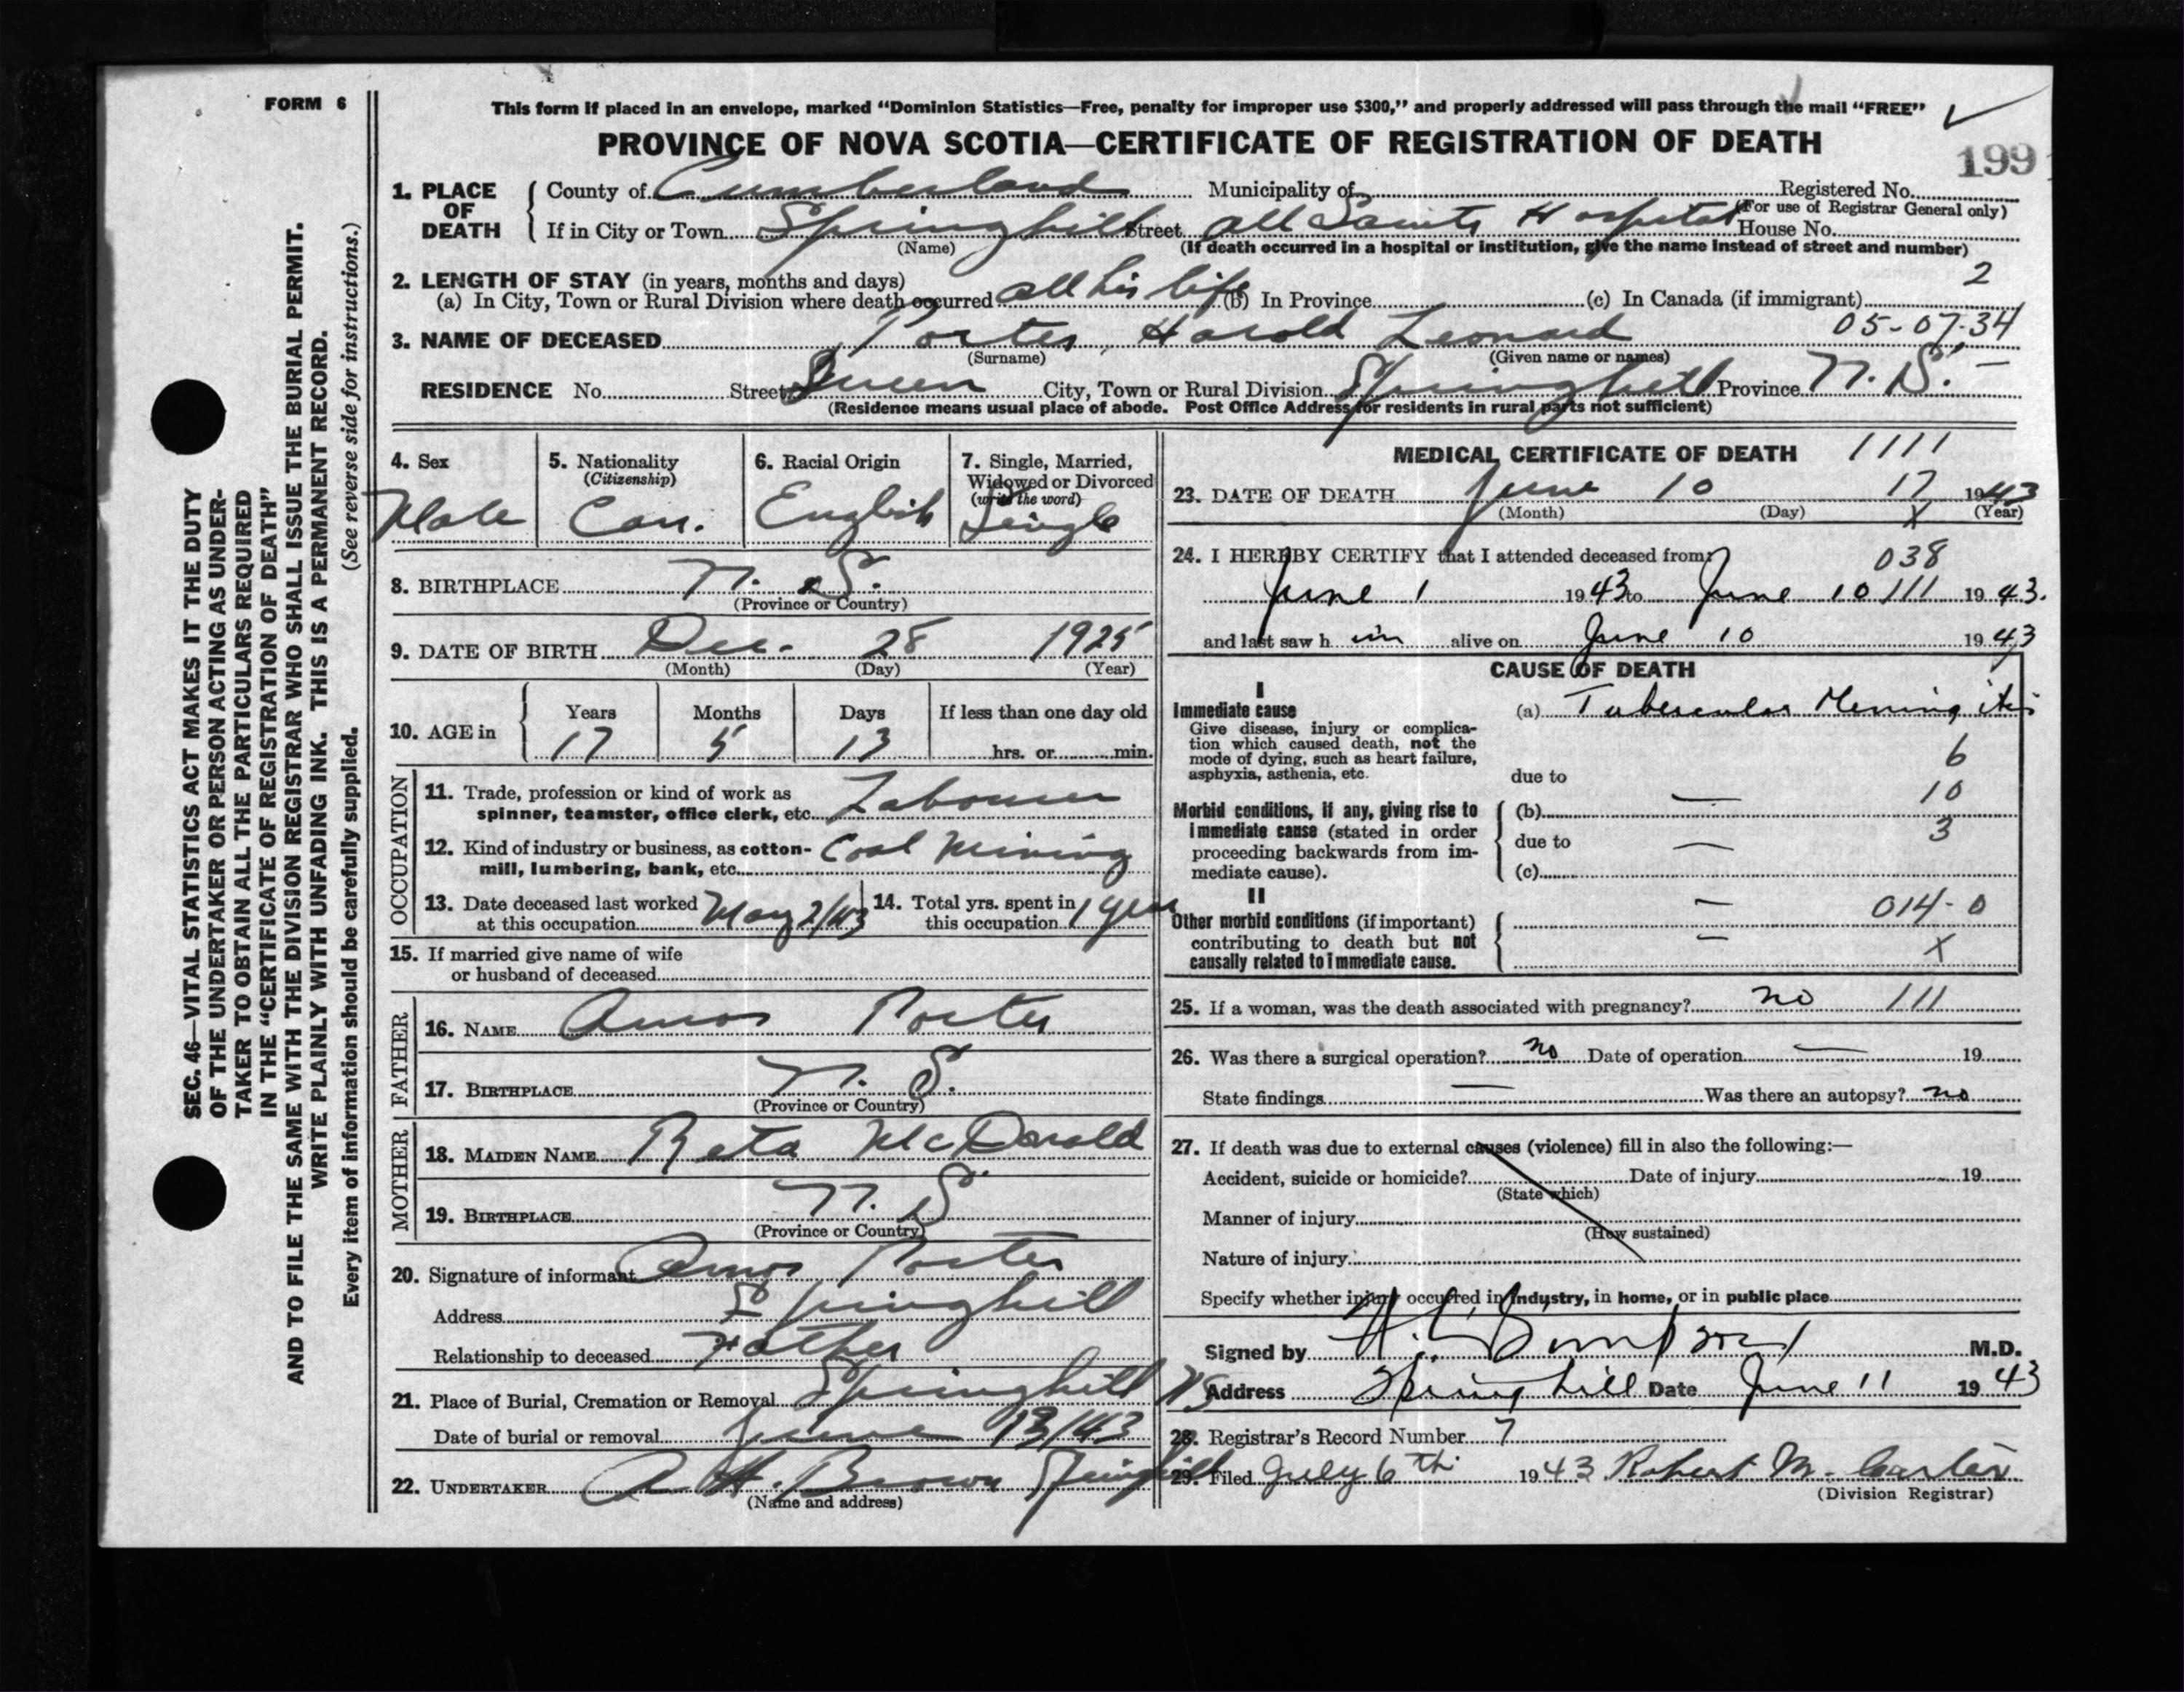 FORM 6
This form if placed in an envelope, marked “Dominion Statistics—Free, penalty for improper use $300,” and properly addressed will pass through the mail “FREE”
PROVINCE OF NOVA SCOTIA—CERTIFICATE OF REGISTRATION OF DEATH
199
1. PLACE OF DEATH { County of Cumberland Municipality of Registered No.
(For use of Registrar General only)
If in City or Town Springhill Street All Saints Hospital House No.
(Name) (If death occurred in a hospital or institution, give the name instead of street and number)
2. LENGTH OF STAY (in years, months and days) 2
(a) In City, Town or Rural Division where death occurred all his life (b) In Province (c) In Canada (if immigrant)
3. NAME OF DECEASED Porter, Harold Leonard 05-07-34
(Surname) (Given name or names)
RESIDENCE No. Street Queen City, Town or Rural Division Springhill Province N.S. –
(Residence means usual place of abode. Post Office Address for residents in rural parts not sufficient)
4. Sex Male
5. Nationality (Citizenship) Can.
6. Racial Origin English
7. Single, Married, Widowed or Divorced (write the word) Single
8. BIRTHPLACE N. S.
(Province or Country)
9. DATE OF BIRTH Dec. 28 1925
(Month) (Day) (Year)
10. AGE in Years Months Days If less than one day old
17 5 13 hrs. or min.
OCCUPATION
11. Trade, profession or kind of work as spinner, teamster, office clerk, etc. Labourer
12. Kind of industry or business, as cotton-mill, lumbering, bank, etc. Coal Mining
13. Date deceased last worked at this occupation May 2/43
14. Total yrs. spent in this occupation 1 year
15. If married give name of wife or husband of deceased
FATHER
16. NAME Amos Porter
17. BIRTHPLACE N. S.
(Province or Country)
MOTHER
18. MAIDEN NAME Reta McDonald
19. BIRTHPLACE N. S.
(Province or Country)
20. Signature of informant Amos Porter
Address Springhill
Relationship to deceased Father
21. Place of Burial, Cremation or Removal Springhill NS
Date of burial or removal June 13/43
22. UNDERTAKER A H. Brown Springhill
(Name and address)
MEDICAL CERTIFICATE OF DEATH 1111
23. DATE OF DEATH June 10 17 1943
(Month) (Day) X (Year)
24. I HEREBY CERTIFY that I attended deceased from: 038
June 1 1943 to June 10 111 1943.
and last saw him alive on June 10 1943
CAUSE OF DEATH
I
Immediate cause (a) Tubercular Meningitis
Give disease, injury or complication which caused death, not the mode of dying, such as heart failure, asphyxia, asthenia, etc.
6
due to
10
Morbid conditions, if any, giving rise to immediate cause (stated in order proceeding backwards from immediate cause).
(b) —
3
due to —
(c)
II
Other morbid conditions (if important) contributing to death but not causally related to immediate cause.
— 014-0
— X
25. If a woman, was the death associated with pregnancy? no 111
26. Was there a surgical operation? no Date of operation — 19
State findings — Was there an autopsy? no
27. If death was due to external causes (violence) fill in also the following:—
Accident, suicide or homicide? Date of injury 19
(State which)
Manner of injury
(How sustained)
Nature of injury
Specify whether injury occurred in industry, in home, or in public place
Signed by Simpson M.D.
Address Springhill Date June 11 1943
28. Registrar's Record Number 7
29. Filed July 6th 1943 Robert M. Carter
(Division Registrar)
SEC. 46—VITAL STATISTICS ACT MAKES IT THE DUTY
OF THE UNDERTAKER OR PERSON ACTING AS UNDER-
TAKER TO OBTAIN ALL THE PARTICULARS REQUIRED
IN THE “CERTIFICATE OF REGISTRATION OF DEATH”
AND TO FILE THE SAME WITH THE DIVISION REGISTRAR WHO SHALL ISSUE THE BURIAL PERMIT.
WRITE PLAINLY WITH UNFADING INK. THIS IS A PERMANENT RECORD.
Every item of information should be carefully supplied. (See reverse side for instructions.)